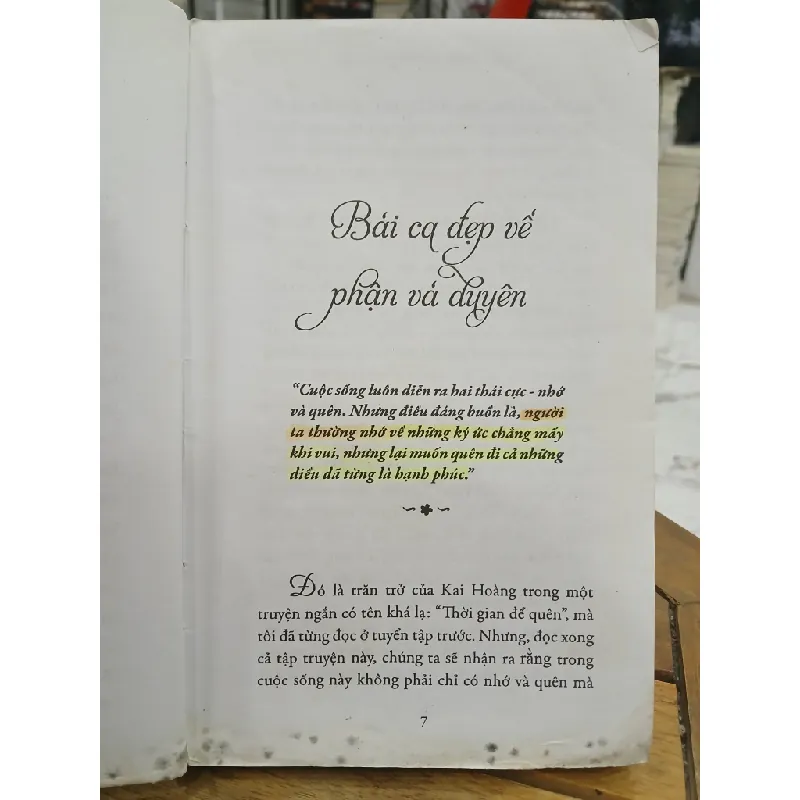 Bài ca đẹp về
phận và duyên
“Cuộc sống luôn diễn ra hai thái cực - nhớ
và quên. Nhưng điều đáng buồn là, người
ta thường nhớ về những ký ức chẳng mấy
khi vui, nhưng lại muốn quên đi cả những
điều đã từng là hạnh phúc.”
Đó là trăn trở của Kai Hoàng trong một
truyện ngắn có tên khá lạ: “Thời gian để quên”, mà
tôi đã từng đọc ở tuyển tập trước. Nhưng, đọc xong
cả tập truyện này, chúng ta sẽ nhận ra rằng trong
cuộc sống này không phải chỉ có nhớ và quên mà
7